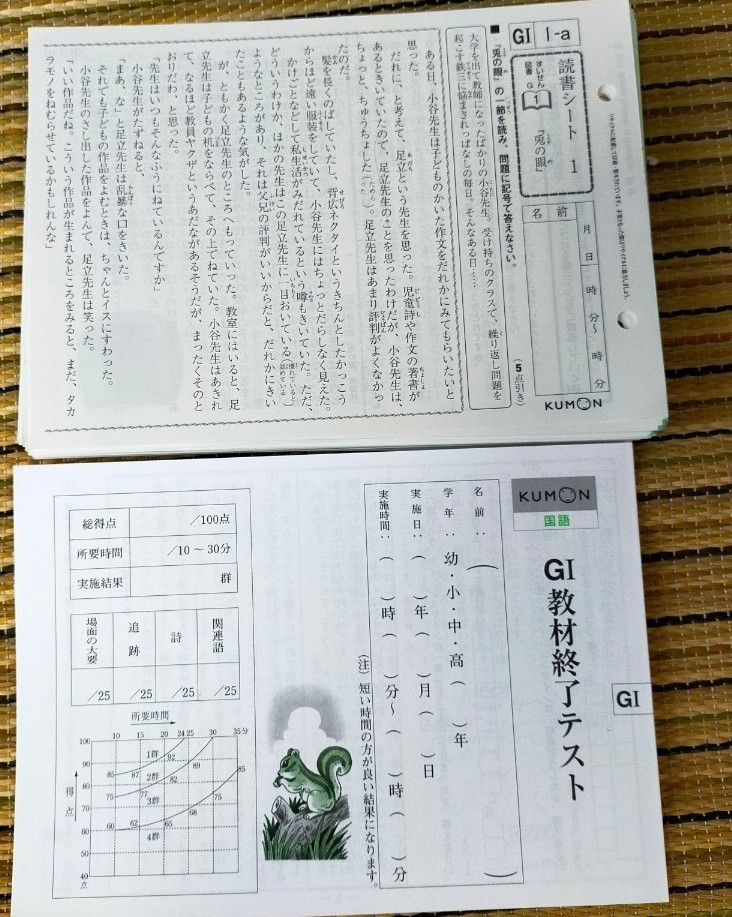 GI 1-a
読書シート 1
すいせん図書 G 1 『兎の眼』
名前
月 日 時 分〜 時 分
KUMON
■ 『兎の眼』の一節を読み、問題に記号で答えなさい。
(5点引き)
大学を出て教師になったばかりの小谷先生。受け持ちのクラスで、繰り返し問題を
起こす鉄三に悩まされっぱなしの毎日。そんなある日……
ある日、小谷先生は子どものかいた作文をだれかにみてもらいたいと
思った。
だれに、と考えて、足立という先生を思った。児童詩や作文の著書が
あるときいていたので、足立先生のことを思ったわけだが、小谷先生は、
ちょっと、ちゅうちょした(ためらった)。足立先生はあまり評判がよくなかっ
たのだ。
髪を長くのばしていたし、背広ネクタイというきちんとしたかっこう
からほど遠い服装をしていて、小谷先生にはちょっとだらしなく見えた。
かけごとなどして私生活がみだれているという噂もきいていた。ただ、
どういうわけか、ほかの先生はこの足立先生に一目おいている(優れていると認めている)
ようなところがあり、それは父兄の評判がいいからだと、だれかにきい
たこともあるような気がした。
が、ともかく足立先生のところへもっていった。教室にはいると、足
立先生は子どもの机をならべて、その上でねていた。小谷先生はあきれ
て、なるほど教員ヤクザというあだながあるそうだが、まったくそのと
おりだわ、と思った。
「先生はいつもそんなふうにねているんですか」
小谷先生がたずねると、
「まあ、な」と足立先生は乱暴な口をきいた。
それでも子どもの作品をよむときは、ちゃんとイスにすわった。
小谷先生のさし出した作品をよんで、足立先生は笑った。
「いい作品だね。こういう作品が生まれるところをみると、まだ、タカ
ラモノをねむらせているかもしれんな」
KUMON
国語
GI 教材終了テスト
GI
名前:( )
学年: 幼・小・中・高( )年
実施日:( )年( )月( )日
実施時間:( )時( )分〜( )時( )分
(注) 短い時間の方が良い結果になります。
総得点 /100点
所要時間 /10 〜 30分
実施結果 群
場面の大要 追跡 詩 関連語
/25 /25 /25 /25
所要時間
10 15 20 24 25 30 35分
100
90
80
70
60
50
40点
得点
1群
2群
3群
4群
85 87 92
75 77 82 89
60 62 65 68 75 85